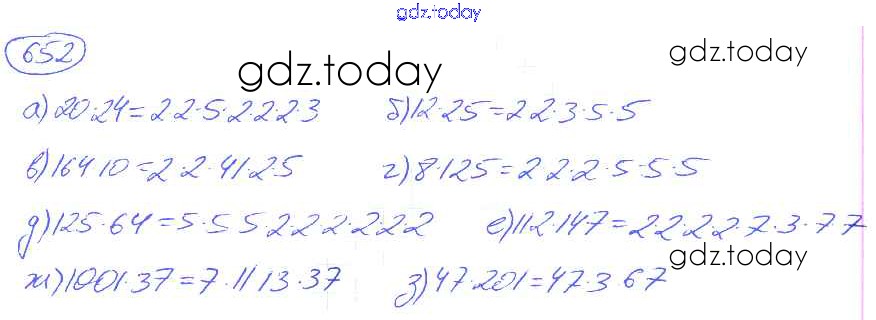 gdz.today
652
gdz.today
gdz.today
а) 20·24=2·2·5·2·2·2·3 б) 12·25=2 2·3·5·5
в) 164 10=2·2·41·2·5 г) 8·125=2 2·2·5·5·5
д) 125·64=5·5 5 2·2 2·2·2 2 е) 112·147=2·2·2·2·7·3·7·7
gdz.today
ж) 1001·37=7·11 13·37 з) 47·201=47·3·67